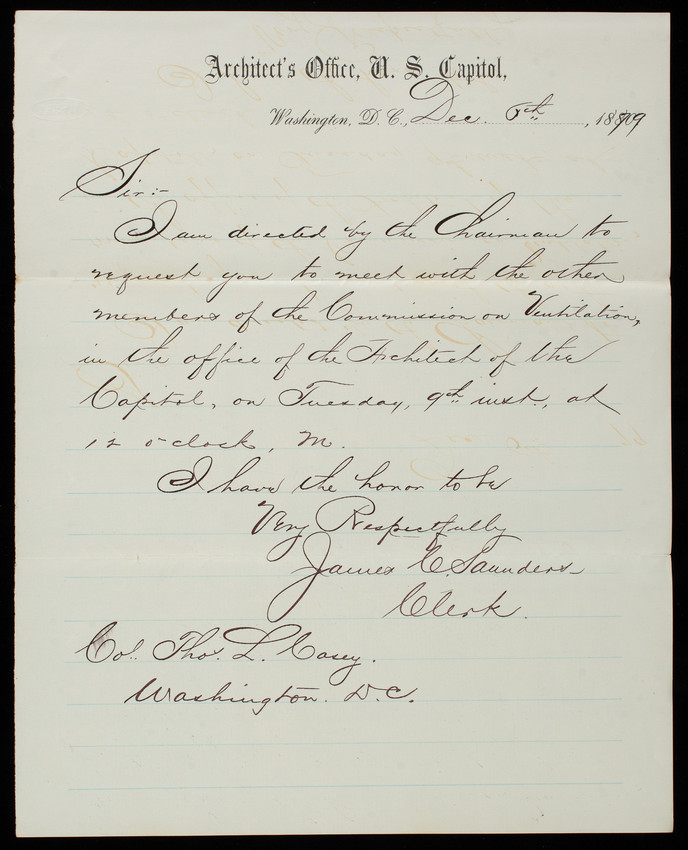 Architect's Office, U. S. Capitol,
Washington, D. C., Dec. , 1879
Sir:-
I am directed by the Chairman to
request you to meet with the other
members of the Commission on Ventilation,
in the office of the Architect of the
Capitol, on Tuesday, 9th inst., at
12 o-clock, M.
I have the honor to be
Very Respectfully
James C. Saunders-
Clerk.
Col. Tho. L. Casey.
Washington. D.C.